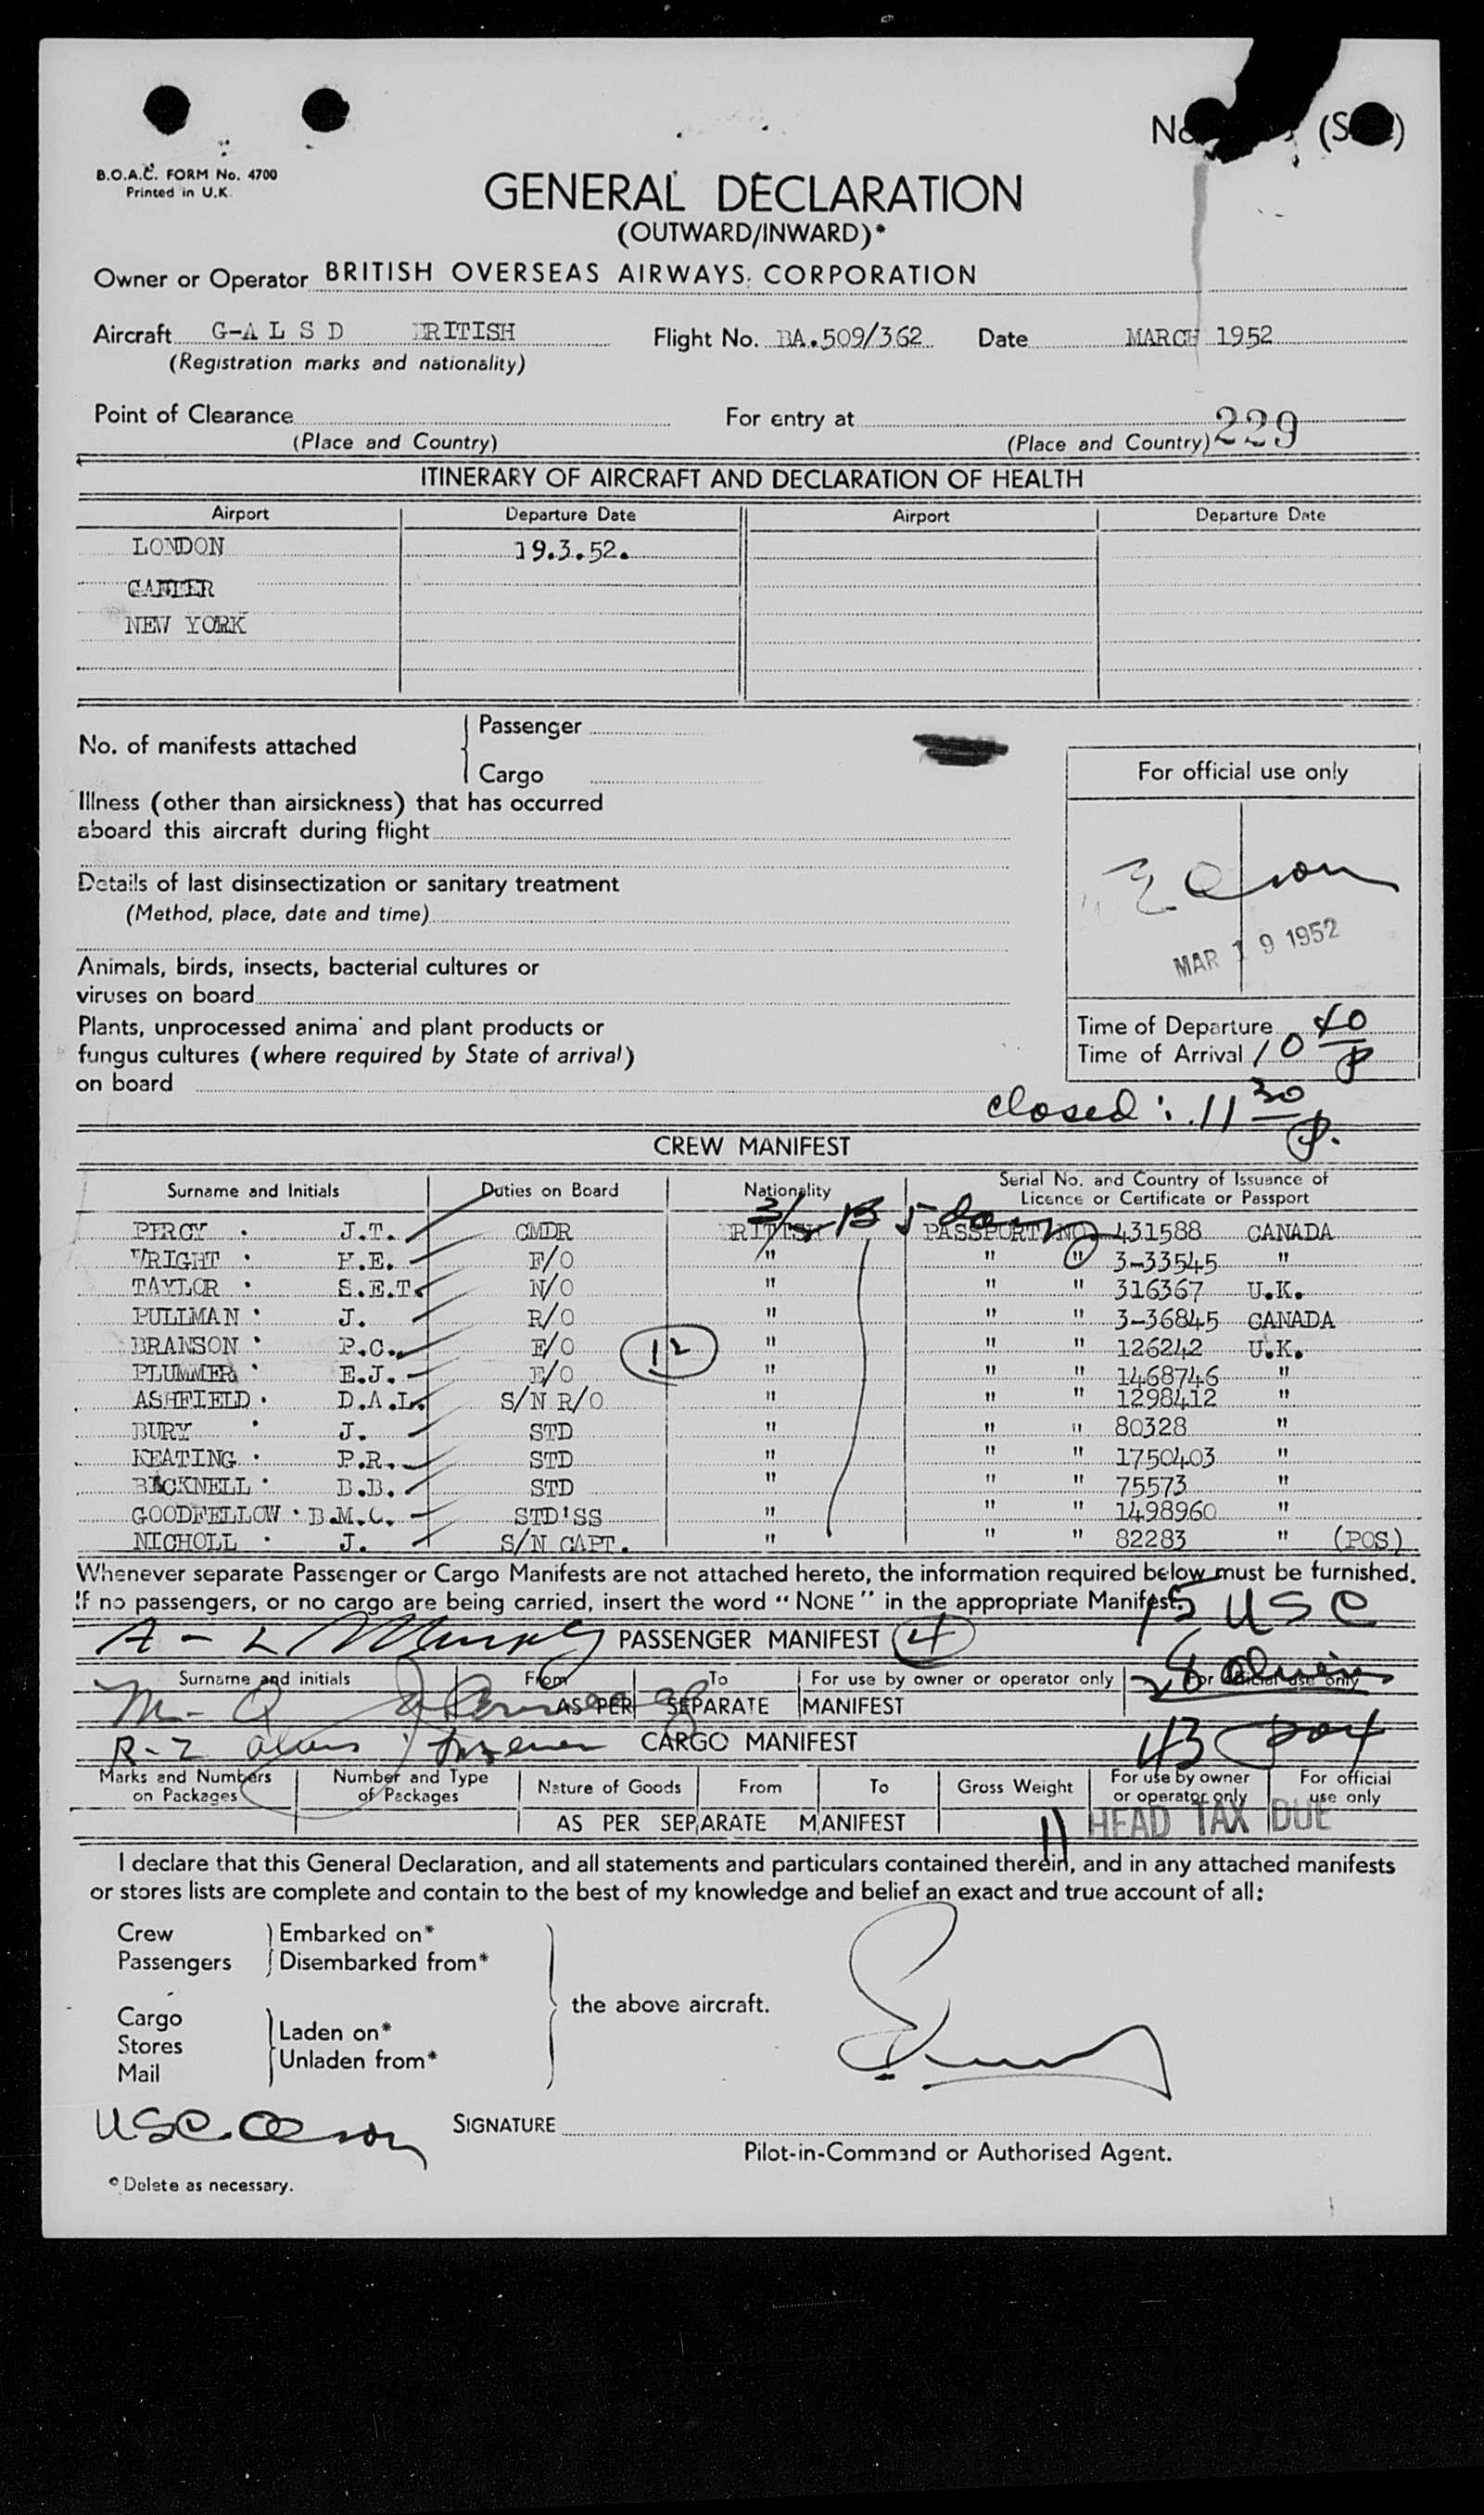 No (S )
B.O.A.C. FORM No. 4700
Printed in U.K.
GENERAL DECLARATION
(OUTWARD/INWARD)*
Owner or Operator BRITISH OVERSEAS AIRWAYS CORPORATION
Aircraft G-A L S D BRITISH Flight No. BA.509/362 Date MARCH 1952
(Registration marks and nationality)
Point of Clearance For entry at
(Place and Country) (Place and Country) 229
ITINERARY OF AIRCRAFT AND DECLARATION OF HEALTH
Airport Departure Date Airport Departure Date
LONDON 19.3.52.
GANDER
NEW YORK
No. of manifests attached { Passenger
Cargo
For official use only
Illness (other than airsickness) that has occurred
aboard this aircraft during flight
Details of last disinsectization or sanitary treatment
(Method, place, date and time)
MAR 19 1952
Animals, birds, insects, bacterial cultures or
viruses on board
Plants, unprocessed animal and plant products or
fungus cultures (where required by State of arrival)
on board
Time of Departure
Time of Arrival 10 40 P
closed : 11 30 P.
CREW MANIFEST
Surname and Initials Duties on Board Nationality Serial No. and Country of Issuance of
Licence or Certificate or Passport
PERCY J.T. CMDR BRITISH PASSPORT NO 431588 CANADA
WRIGHT H.E. F/O " " " 3-33545 "
TAYLOR S.E.T. N/O " " " 316367 U.K.
PULLMAN J. R/O " " " 3-36845 CANADA
BRANSON P.C. E/O 12 " " " 126242 U.K.
PLUMMER E.J. E/O " " " 1468746 "
ASHFIELD D.A.L. S/N R/O " " " 1298412 "
BURY J. STD " " " 80328 "
KEATING P.R. STD " " " 1750403 "
BICKNELL B.B. STD " " " 75573 "
GOODFELLOW B.M.C. STD'SS " " " 1498960 "
NICHOLL J. S/N CAPT. " " " 82283 " (POS)
Whenever separate Passenger or Cargo Manifests are not attached hereto, the information required below must be furnished.
If no passengers, or no cargo are being carried, insert the word "NONE" in the appropriate Manifest.
15 USC
A - L Murphy PASSENGER MANIFEST 4
Surname and initials From To For use by owner or operator only For official use only
28 Aliens
AS PER SEPARATE MANIFEST
R-Z CARGO MANIFEST 43
Marks and Numbers on Packages Number and Type of Packages Nature of Goods From To Gross Weight For use by owner or operator only For official use only
AS PER SEPARATE MANIFEST 11 HEAD TAX DUE
I declare that this General Declaration, and all statements and particulars contained therein, and in any attached manifests
or stores lists are complete and contain to the best of my knowledge and belief an exact and true account of all:
Crew
Passengers
Embarked on*
Disembarked from*
the above aircraft.
Cargo
Stores
Mail
Laden on*
Unladen from*
USC
SIGNATURE
Pilot-in-Command or Authorised Agent.
* Delete as necessary.